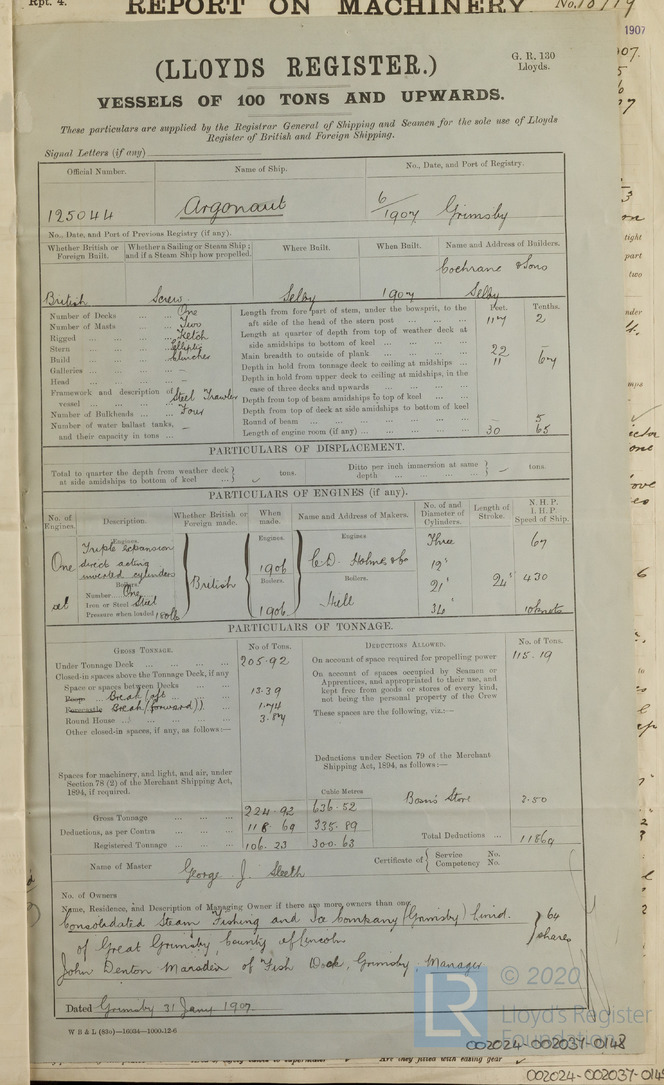 Rpt. 4.
REPORT ON MACHINERY
1907
(LLOYDS REGISTER.)
G. R. 130
Lloyds.
VESSELS OF 100 TONS AND UPWARDS.
These particulars are supplied by the Registrar General of Shipping and Seamen for the sole use of Lloyds
Register of British and Foreign Shipping.
Signal Letters (if any)
Official Number. Name of Ship. No., Date, and Port of Registry.
125044 Argonaut 6/1907 Grimsby
No., Date, and Port of Previous Registry (if any)
Whether British or Foreign Built. Whether a Sailing or Steam Ship; and if a Steam Ship how propelled. Where Built. When Built. Name and Address of Builders.
Cochrane & Sons
British Screw Selby 1907 Selby
Number of Decks One
Number of Masts Two
Rigged Ketch
Stern Elliptic
Build Clincher
Galleries –
Head –
Framework and description of vessel Steel Trawler
Number of Bulkheads Four
Number of water ballast tanks, and their capacity in tons –
Feet. Tenths.
Length from fore part of stem, under the bowsprit, to the
aft side of the head of the stern post 117 2
Length at quarter of depth from top of weather deck at
side amidships to bottom of keel
Main breadth to outside of plank 22
Depth in hold from tonnage deck to ceiling at midships 11 67
Depth in hold from upper deck to ceiling at midships, in the
case of three decks and upwards
Depth from top of beam amidships to top of keel
Depth from top of deck at side amidships to bottom of keel
Round of beam 5
Length of engine room (if any) 30 65
PARTICULARS OF DISPLACEMENT.
Total to quarter the depth from weather deck at side amidships to bottom of keel tons. Ditto per inch immersion at same depth tons.
PARTICULARS OF ENGINES (if any).
No. of Engines. Description. Whether British or Foreign made. When made. Name and Address of Makers. No. of and Diameter of Cylinders. Length of Stroke. N. H. P. I. H. P. Speed of Ship.
Engines. Engines. Engines
One Triple expansion direct acting inverted cylinders British 1906 C.D. Holmes & Co Three 12" 67
Boilers. Boilers. Boilers.
Number One 21" 24" 430
Iron or Steel Steel
Pressure when loaded 180 lb 1906 Hull 34" 10 knots
PARTICULARS OF TONNAGE.
GROSS TONNAGE. No of Tons. DEDUCTIONS ALLOWED. No. of Tons.
Under Tonnage Deck 205.92
Closed-in spaces above the Tonnage Deck, if any
Space or spaces between Decks
Poop Break (aft 13.39
Forecastle Break (forward)) 1.74
Round House 3.87
Other closed-in spaces, if any, as follows:—
Spaces for machinery, and light, and air, under
Section 78 (2) of the Merchant Shipping Act,
1894, if required.
Cubic Metres
Gross Tonnage 224.92 636.52
Deductions, as per Contra 118 69 335.89
Registered Tonnage 106.23 300.63
On account of space required for propelling power 115.19
On account of spaces occupied by Seamen or
Apprentices, and appropriated to their use, and
kept free from goods or stores of every kind,
not being the personal property of the Crew
These spaces are the following, viz.:—
Deductions under Section 79 of the Merchant
Shipping Act, 1894, as follows:—
Bosn's Store 3.50
Total Deductions 11869
Name of Master George J. Sleeth Certificate of Service No. Competency No.
No. of Owners
Name, Residence, and Description of Managing Owner if there are more owners than one
Consolidated Steam Fishing and Ice Company (Grimsby) Limd. 64
of Great Grimsby, County of Lincoln shares
John Denton Marsden of Fish Dock, Grimsby, Manager
Dated Grimsby 31 Jany 1907.
W B & L (83o)—16034—1000-12-6
LR
© 2020
Lloyd's Register
Foundation
002024-002037-0148
Are they fitted with easing gear